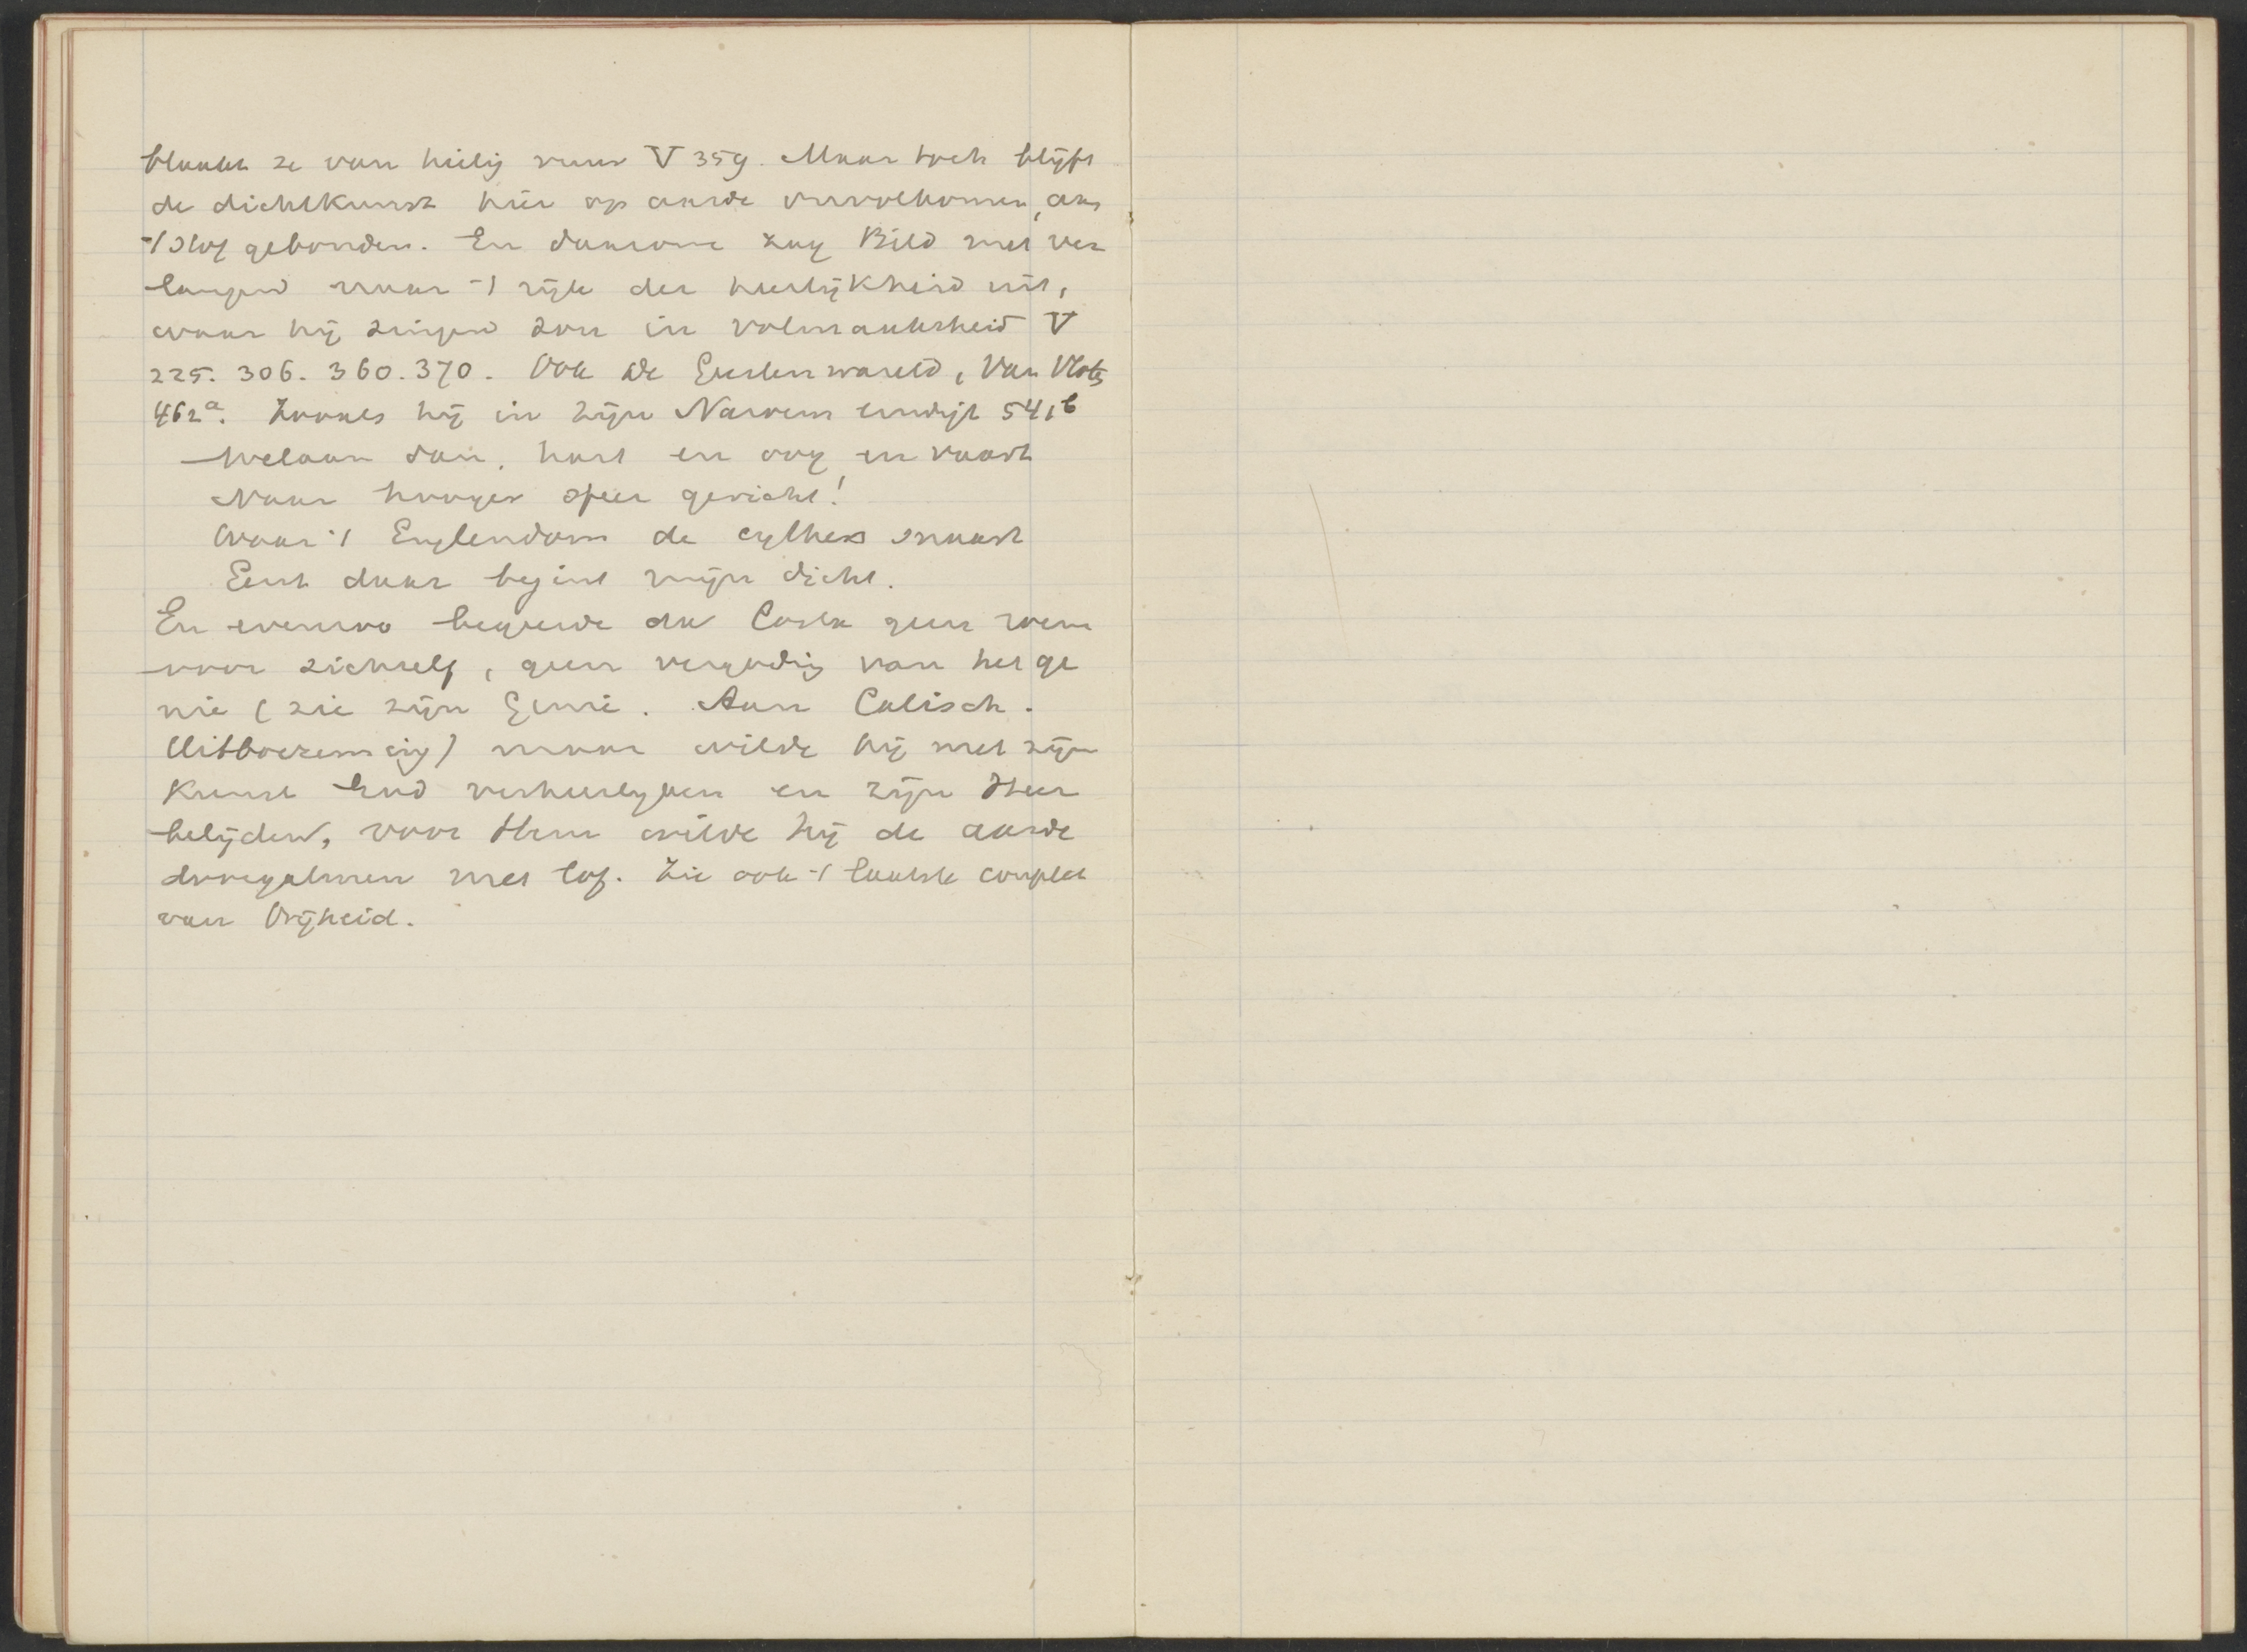 blaakt ze van heilig vuur V 359. Maar toch blijft
de dichtkunst hier op aarde onvolkomen, aan
't stof gebonden. En daarom zag Bild met ver
langend naar 't rijk der heerlijkheid uit,
waar hij zingen zou in volmaaktheid V
225. 306. 360. 370. Ook de Geestenwareld, Van Vloten
462a. Zooals hij in zijn Navonk eindigt 541b
Welaan dan, hart en oog en vaart
Naar hooger sfeer gericht!
Waar 't Englendom de cyther snaart
Eerst daar begint mijn dicht.
En evenzoo begeerde da Costa geen roem
voor zichzelf, geen vergoding van het ge
nie (zie zijn Genie. Aan Calisch.
Uitboezeming) maar wilde hij met zijn
kunst God verheerlijken en zijn Heer
belijden, voor Hem wilde hij de aarde
doorgalmen met lof. Zie ook 't laatste couplet
van Vrijheid.